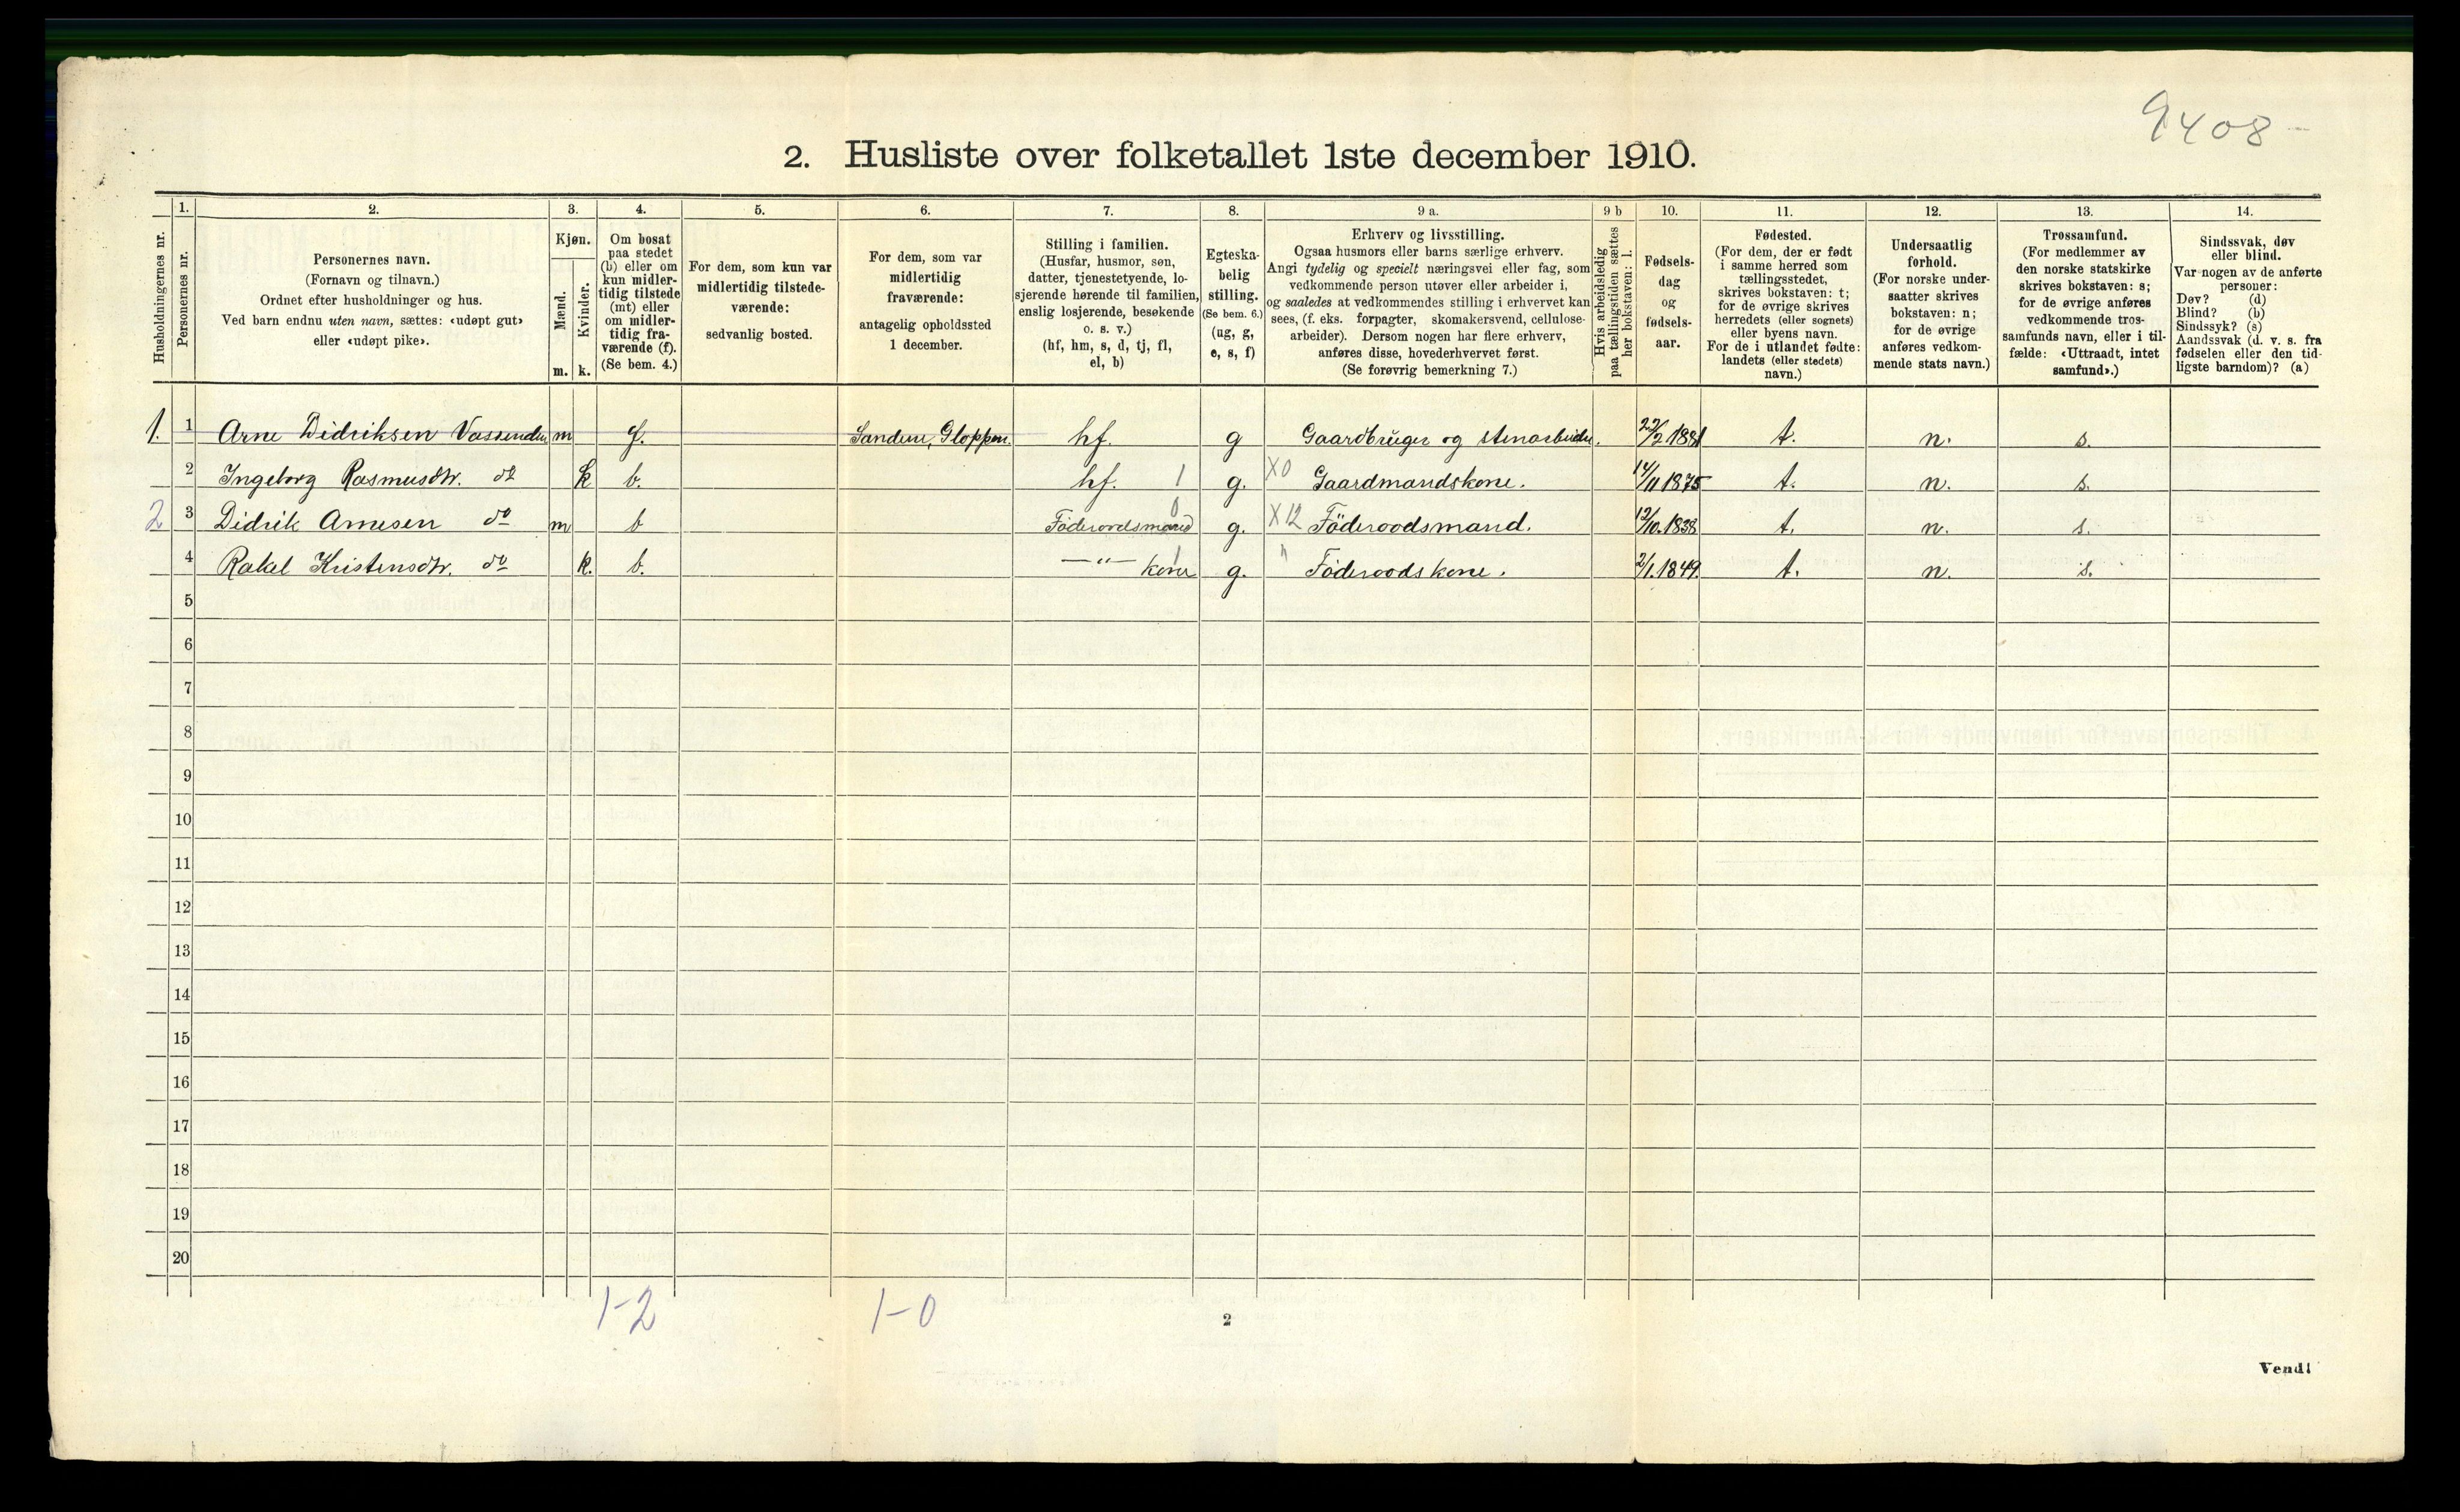 9408-
2. Husliste over folketallet 1ste december 1910.
Husholdningernes nr.
1. Personernes nr.
2. Personernes navn.
(Fornavn og tilnavn.)
Ordnet efter husholdninger og hus.
Ved barn endnu uten navn, sættes: «udøpt gut»
eller «udøpt pike».
3. Kjøn.
Mænd. m.
Kvinder. k.
4. Om bosat
paa stedet
(b) eller om
kun midler-
tidig tilstede
(mt) eller
om midler-
tidig fra-
værende (f).
(Se bem. 4.)
5. For dem, som kun var
midlertidig tilstede-
værende:
sedvanlig bosted.
6. For dem, som var
midlertidig
fraværende:
antagelig opholdssted
1 december.
7. Stilling i familien.
(Husfar, husmor, søn,
datter, tjenestetyende, lo-
sjerende hørende til familien,
enslig losjerende, besøkende
o. s. v.)
(hf, hm, s, d, tj, fl,
el, b)
8. Egteska-
belig
stilling.
(Se bem. 6.)
(ug, g,
e, s, f)
9 a. Erhverv og livsstilling.
Ogsaa husmors eller barns særlige erhverv.
Angi tydelig og specielt næringsvei eller fag, som
vedkommende person utøver eller arbeider i,
og saaledes at vedkommendes stilling i erhvervet kan
sees, (f. eks. forpagter, skomakersvend, cellulose-
arbeider). Dersom nogen har flere erhverv,
anføres disse, hovederhvervet først.
(Se forøvrig bemerkning 7.)
9 b Hvis arbeidsledig
paa tællingstiden sættes
her bokstaven: l.
10. Fødsels-
dag
og
fødsels-
aar.
11. Fødested.
(For dem, der er født
i samme herred som
tællingsstedet,
skrives bokstaven: t;
for de øvrige skrives
herredets (eller sognets)
eller byens navn.
For de i utlandet fødte:
landets (eller stedets)
navn.)
12. Undersaatlig
forhold.
(For norske under-
saatter skrives
bokstaven: n;
for de øvrige
anføres vedkom-
mende stats navn.)
13. Trossamfund.
(For medlemmer av
den norske statskirke
skrives bokstaven: s;
for de øvrige anføres
vedkommende tros-
samfunds navn, eller i til-
fælde: «Uttraadt, intet
samfund».)
14. Sindssvak, døv
eller blind.
Var nogen av de anførte
personer:
Døv? (d)
Blind? (b)
Sindssyk? (s)
Aandssvak (d. v. s. fra
fødselen eller den tid-
ligste barndom)? (a)
1. 1 Arne Didriksen Vassenden m f. Sandene, Gloppen. hf. g Gaardbruger og stenarbeider. 22/2 1881 t. n. s.
2 Ingeborg Rasmusdtr. do k b. hf. 1 g. X0 Gaardmandskone. 14/11 1875 t. n. s.
2 3 Didrik Arnesen do m b Föderaadsmand 0 g. X12 Föderaadsmand. 12/10.1838 t. n. s.
4 Rakel Kristensdtr. do k. b. —"— kone 1 g. " Föderaadskone. 2/1.1849. t. n. s.
5
6
7
8
9
10
11
12
13
14
15
16
17
18
19
20
1-2 1-0
2
Vend!